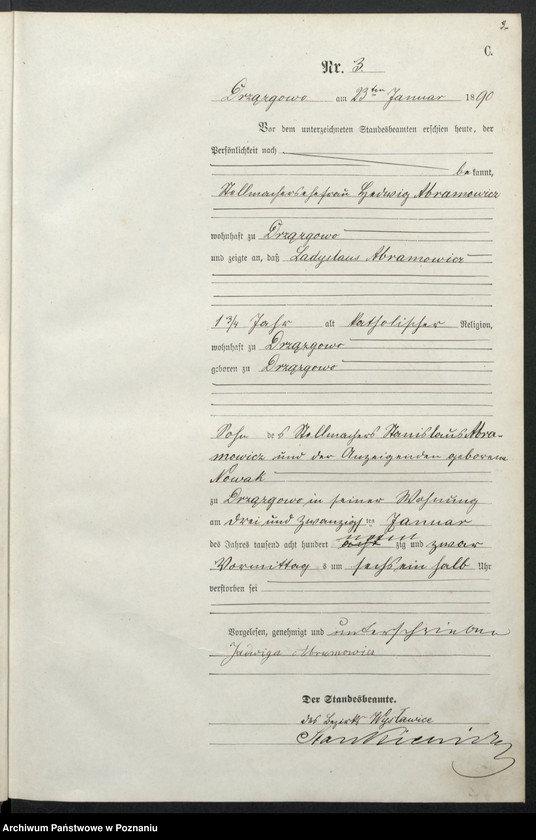 2.
C.
Nr. 3.
Drzązgowo am 23ten Januar 1890
Vor dem unterzeichneten Standesbeamten erschien heute, der
Persönlichkeit nach
bekannt,
Stellmachersehefrau Hedwig Abramowicz
wohnhaft zu Drzązgowo
und zeigte an, daß Ladyslaus Abramowicz
1 3/4 Jahr alt katholischer Religion,
wohnhaft zu Drzązgowo
geboren zu Drzązgowo
Sohn des Stellmachers Stanislaus Abra-
mowicz und der Anzeigenden geborenen
Nowak
zu Drzązgowo in seiner Wohnung
am drei und zwanzigsten Januar
des Jahres tausend acht hundert neun zig und zwar
Vormittags um sechs ein halb Uhr
verstorben sei
Vorgelesen, genehmigt und unterschrieben
Jadwiga Abramowicz
Der Standesbeamte.
des Bezirks Wysławice
Stankiewicz
Archiwum Państwowe w Poznaniu